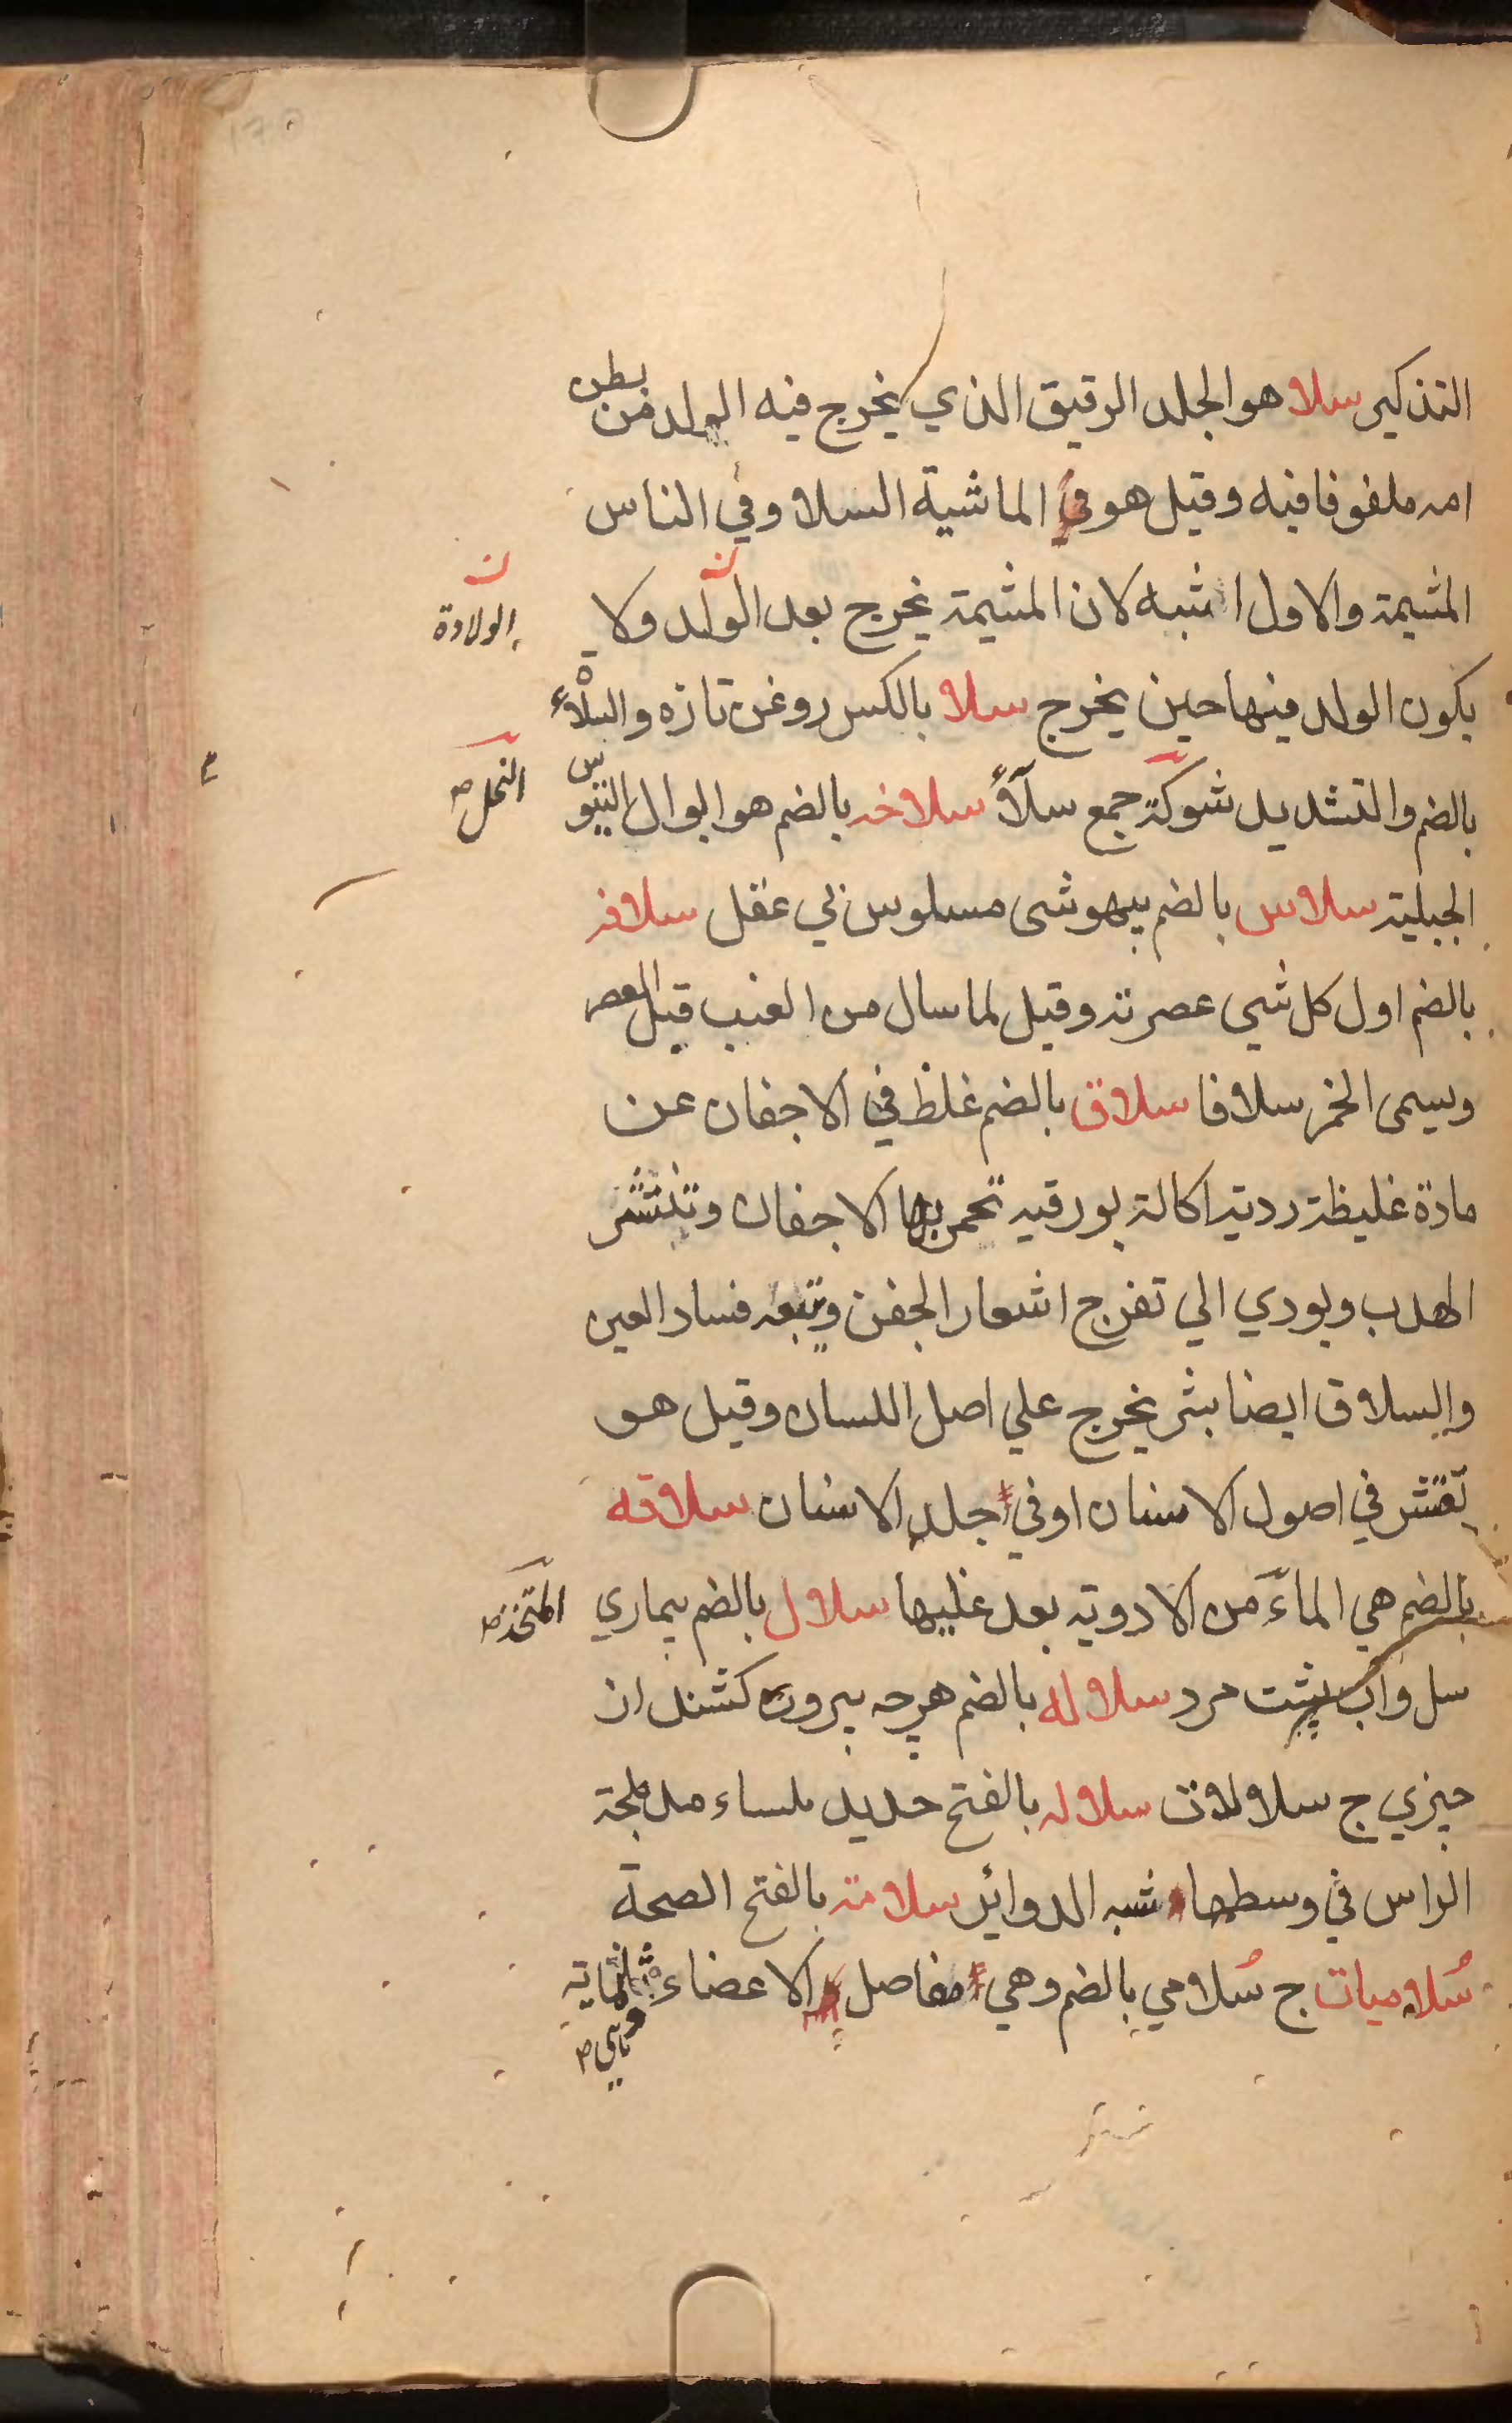 التذكير سلا هو الجلد الرقيق الذي يخرج فيه الولد من بطن
امه ملفوفا فيه وقيل هو في الماشية السلا وفي الناس
المشيمة والاول اشبه لان المشيمة يخرج بعد الولد ولا
الولادة
يكون الولد فيها حين يخرج سلا بالكسر روغن تازه والسلاء
بالضم والتشديد شوكة جمع سلآؤ سلاخه بالضم هو ابوال التيوس
النخل ص
الجبلية سلاس بالضم بيهوشى مسلوس بي عقل سلافه
بالضم اول كل شي عصرته وقيل لما سال من العنب قبل العصر
ويسمى الخمر سلافا سلاق بالضم غلظ في الاجفان عن
مادة غليظة ردية اكالة بورقيه تحمر بها الاجفان وتنتشر
الهدب ويودي الي تفرج اشعار الجفن ويتبعه فساد العين
والسلاق ايضا بثر يخرج علي اصل اللسان وقيل هو
تقشر في اصول الاسنان او في جلد الاسنان سلاقه
بالضم هي الماء من الادويه بعد غليها سلال بالضم بيماري
المتخذ ص
سل واب پشت مرد سلاله بالضم هرچه بيرون كشند از
چيزي ج سلالات سلاله بالفتح حديد ملساء مدملجة
الراس في وسطها شبه الدوائر سلامة بالفتح الصحة
سُلاميات ج سُلامي بالضم وهي مفاصل الاعضاء ثلثماية